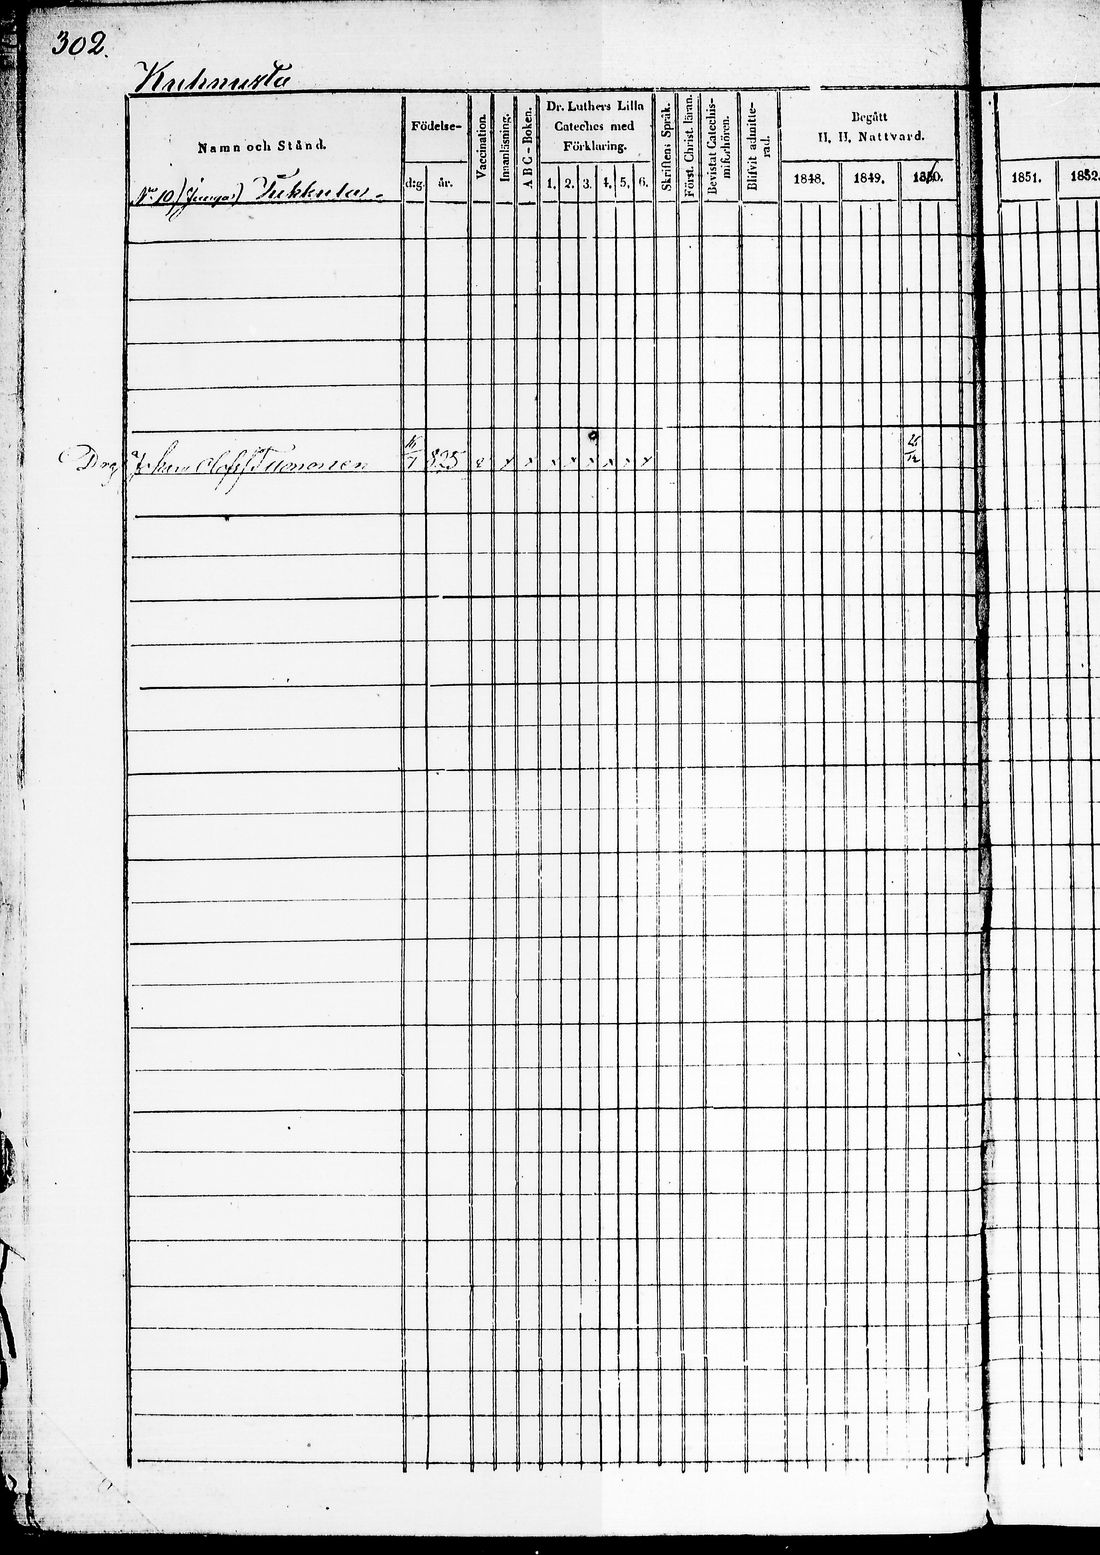 302.
Kuhmusta
Namn och Stånd.
Födelse-
dag.
år.
Vaccination.
Innanläsning.
A B C - Boken.
Dr. Luthers Lilla
Cateches med
Förklaring.
1. 2. 3. 4. 5. 6.
Skriftens Språk.
Först. Christ. läran.
Bevistat Catechis-
miförhören.
Blifvit admitte-
rad.
Begått
H. H. Nattvard.
1848. 1849. 1850.
1851. 1852.
No 10 Tukkula
Drg Johan Olofss Tuononen 825